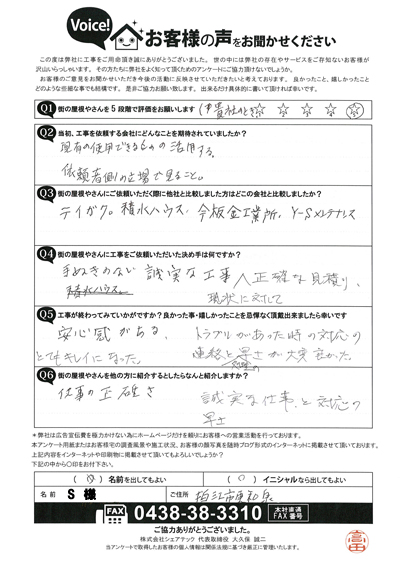 Voice!
お客様の声をお聞かせください
この度は弊社に工事をご用命頂き誠にありがとうございました。 世の中には弊社の存在やサービスをご存知ないお客様が
沢山いらっしゃいます。 その方たちに弊社をよく知って頂くためのアンケートにご協力頂けないでしょうか。
お客様のご意見をお聞かせいただき今後の活動に反映させていただきたいと考えております。 良かったこと、嬉しかったこと
どのような些細な事でも結構です。 是非ご協力お願い致します。 出来るだけ具体的に書いて頂ければ幸いです。
Q1 街の屋根やさんを5段階で評価をお願いします (貴社のとき ☆ ☆ ☆ ☆ ☆
Q2 当初、工事を依頼する会社にどんなことを期待されていましたか?
現有の使用できるものの活用する。
依頼者側の立場で見ること。
Q3 街の屋根やさんにご依頼いただく際に他社と比較しました方はどこの会社と比較しましたか?
テイガク。積水ハウス、今板金工業所、Y-Sメンテナンス
Q4 街の屋根やさんに工事をご依頼いただいた決め手は何ですか?
手ぬきのない 誠実な工事 正確な見積り、
積水ハウス。 現状に対して
Q5 工事が終わってみていかがですか?良かった事・嬉しかったことを忌憚なく頂戴出来ましたら幸いです
安心感がある、 トラブルがあった時の対応の
とてもキレイになった。 連絡と処理の早さが大変良かった。
Q6 街の屋根やさんを他の方に紹介するとしたらなんと紹介しますか?
仕事の正確さ
誠実な仕事、と対応の
早さ
*弊社は広告宣伝費を極力かけない為にホームページだけを頼りにお客様への営業活動を行っております。
本アンケート用紙またはお客様宅の調査風景や施工状況、お客様の顔写真を随時ブログ形式のインターネットに掲載させて頂いております。
上記内容をインターネットや印刷物に掲載させて頂いてもよろしいでしょうか?
下記の中から〇印をお付下さい。
( ) 名前を出してもよい ( 〇 ) イニシャルなら出してもよい
名前 S 様 ご住所 狛江市東和泉
FAX 0438-38-3310 本社直通FAX番号
ご協力ありがとうございました。
株式会社シェアテック 代表取締役 大久保 誠二
当アンケートで取得したお客様の個人情報は関係法規に基づき厳正に管理いたします。
高田